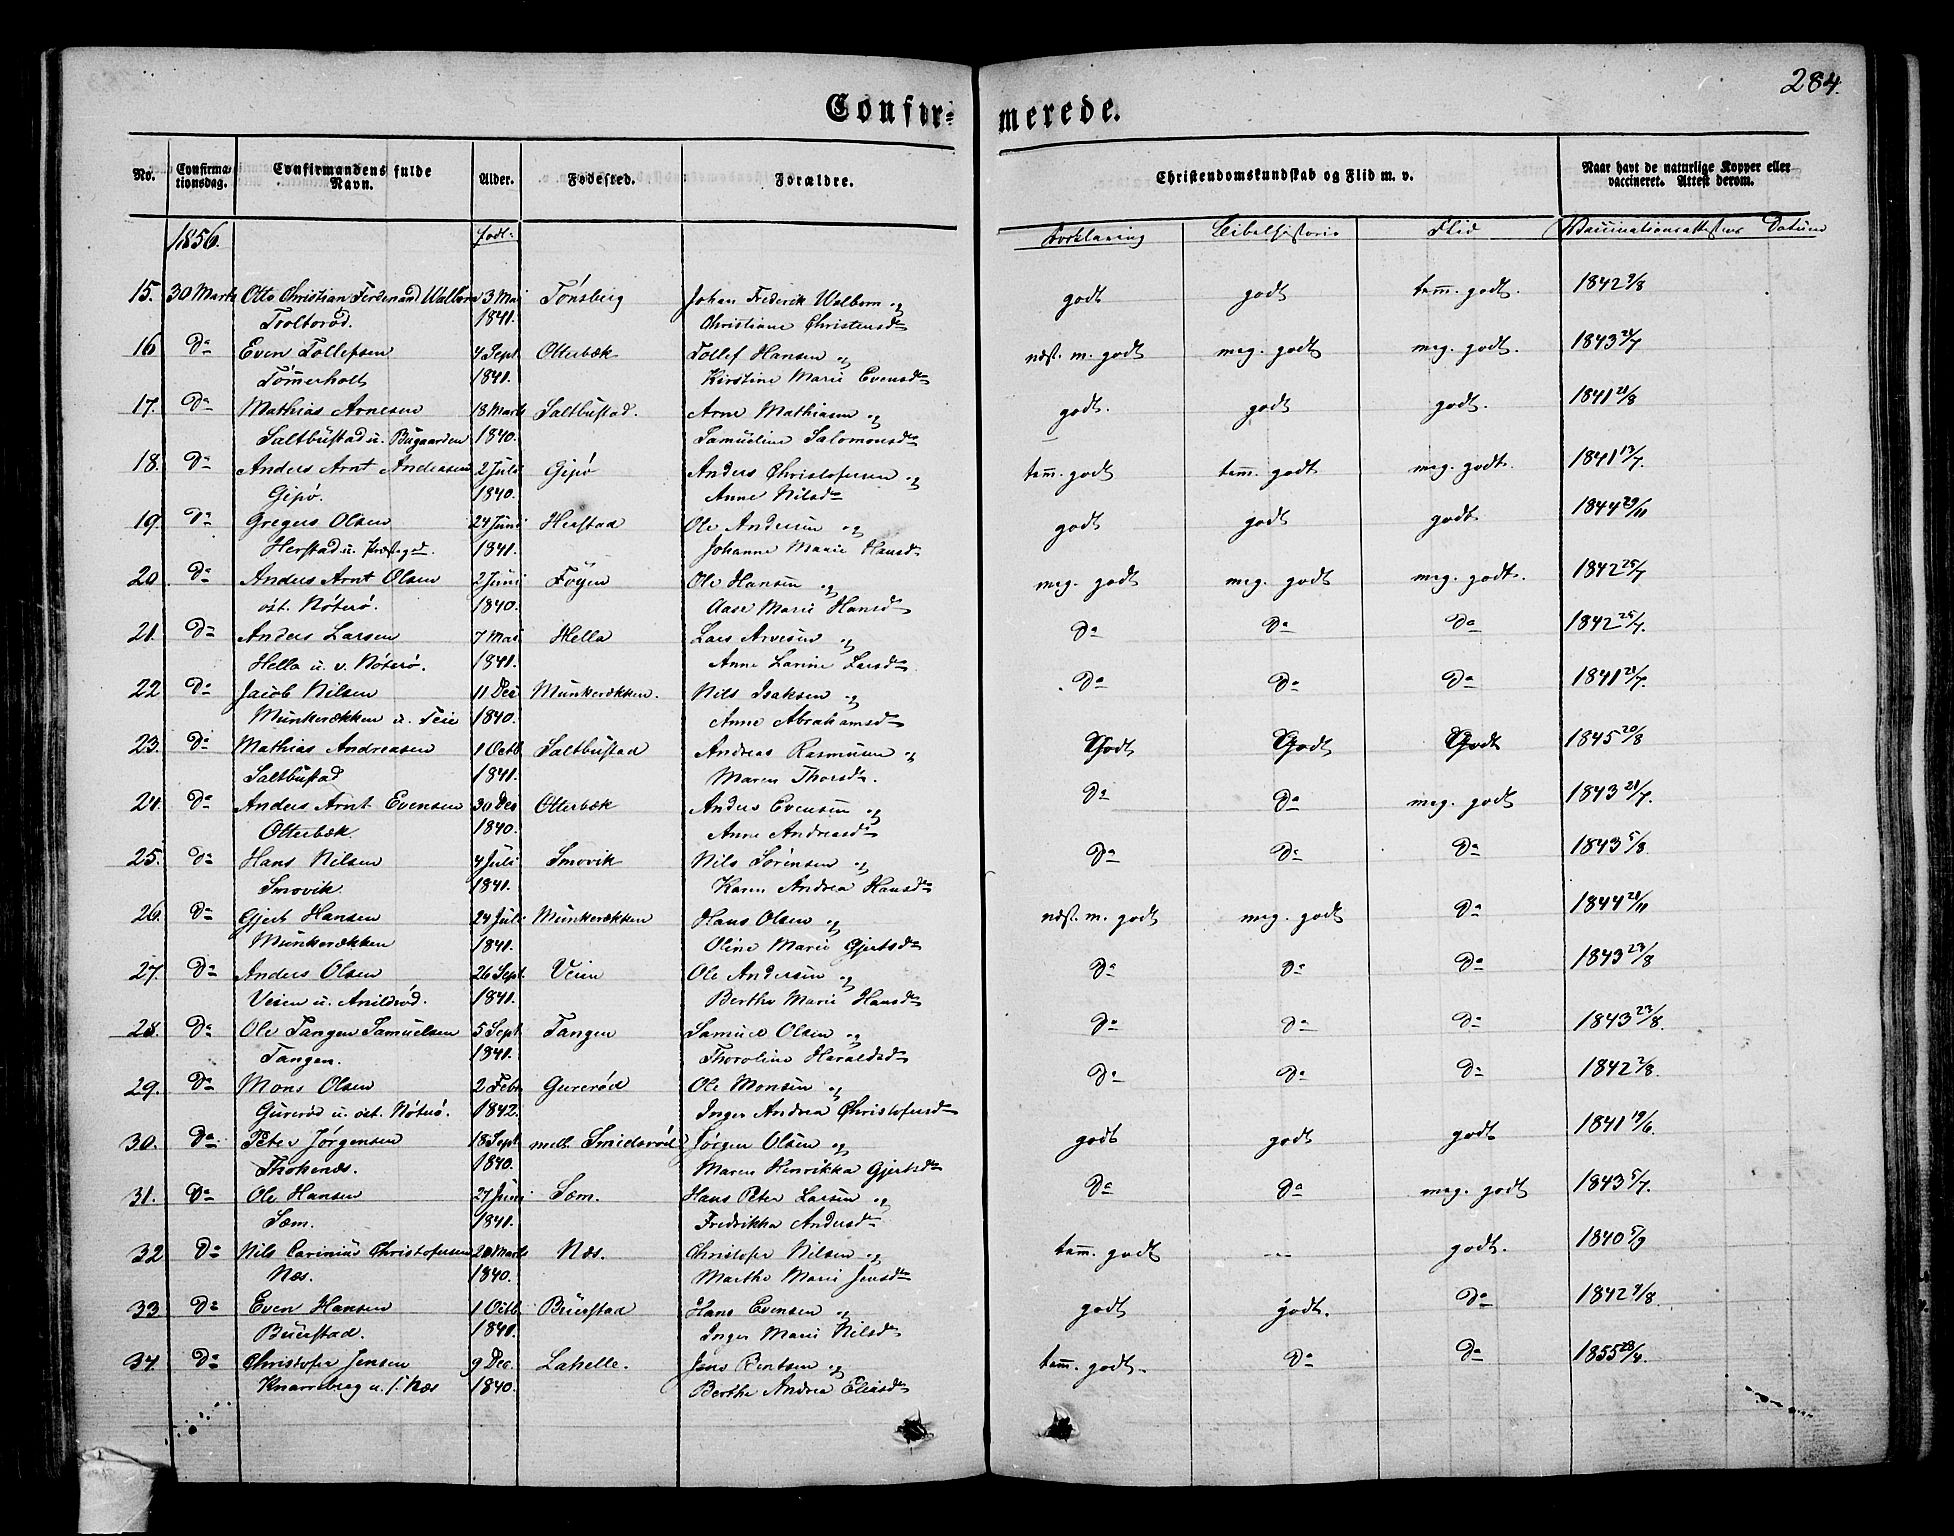 284.
Confir=merede.
No. Confirmationsdag. Confirmandens fulde Navn. Alder. Fødested. Forældre. Christendomskundskab og Flid m. v. Naar havt de naturlige Kopper eller vaccineret. Attest derom.
1856. født. Forklaring Bibelhistorie Flid Vaccinationsattestens Datum
15. 30 Marts Otto Christian Ferdenand Walborn 3 Mai Tønsberg Johan Frederik Walborn og godt godt tem̅. godt. 1842 9/8
Trolborød. 1841. Christiane Christensd
16 Do Even Tollefsen 4 Sept Otterbæk Tollef Hansen og næst. m. godt meg. godt meg. godt. 1843 24/7
Tömerholt 1841. Kirstine Marie Evensd
17. Do Mathias Arnesen 18 Marts Saltbustad. Arne Mathiasen og godt. godt godt. 1841 21/8
Saltbustad u. Bugaarden 1840. Samueline Salomonsd
18. Do Anders Arnt Andreasen 2 Juli Gipø Anders Christofersen og tem̅. godt tem̅. godt meg. godt. 1841 13/7.
Gipø. 1840. Anne Nilsd
19. Do Gregers Olsen 24 Juni Herstad Ole Andersen og godt godt godt 1844 29/11
Herstad u. Præsteg. 1841. Johanne Marie Hansd
20. Do Anders Arnt Olsen 2 Juni Föyen Ole Hansen og meg. godt meg. godt meg. godt. 1842 25/7
øst. Nøterø. 1840. Aase Marie Hansd
21. Do Anders Larsen 7 Mai Hella Lars Arvesen og Do Do Do 1842 25/7.
Hella u. v. Nøterø. 1841. Anne Larine Larsd
22 Do Jacob Nilsen 11 Dec Munkerækken. Nils Isaksen og Do Do Do 1841 21/7.
Munkerækken u. Teie 1840. Anne Abrahamsd
23. Do Mathias Andreasen 1 Octb Saltbustad Andreas Rasmusen og Godt Godt Godt 1845 20/8
Saltbustad 1841. Maren Thorsd.
24. Do Anders Arnt Evensen 30 Dec Otterbæk Anders Evensen og Do Do meg. godt 1843 21/7.
Otterbæk. 1840. Anne Andreasd
25. Do Hans Nilsen 4 Juli Smovik Nils Sørensen og Do Do Do 1843 5/8.
Smovik. 1841. Karen Andrea Hansd
26. Do Gjert Hansen 24 Juli Munkerækken Hans Olsen og næst. m. godt meg. godt Do 1844 28/11
Munkerækken 1841. Oline Marie Gjertsd
27. Do Anders Olsen 26 Sept. Veien Ole Andersen og Do Do Do 1843 23/8
Veien u. Arildsrød. 1841. Berthe Marie Hansd
28. Do Ole Tangen Samuelsen 5 Sept Tangen Samuel Olsen og Do Do Do 1843 23/8.
Tangen. 1841. Thoroline Haraldsd
29. Do Mons Olsen 2 Febr Gurerød Ole Monsen og Do Do Do 1842 2/8.
Gurerød u. øst. Nøterø. 1842. Inger Andrea Christofersd
30. Do Peter Jörgensen 18 Sept. mell. Smidsrød Jörgen Olsen og godt godt godt 1841 19/6.
Thokenæs. 1840. Maren Henrikka Gjertsd
31. Do Ole Hansen 27 Juni Sæm. Hans Peter Larsen og Do Do meg. godt 1843 5/7.
Sæm. 1841. Fredrikka Andersd
32 Do Nils Carinius Christofersen 20 Marts Næs. Christofer Nilsen og tem̅. godt --- godt. 1840 5/9
Næs. 1840. Marthe Marie Jensd
33. Do Even Hansen 1 Octb Buerstad Hans Evensen og godt godt. Do 1842 9/8.
Buerstad. 1840. Inger Marie Nilsd
34. Do Christofer Jensen 9 Dec. Lahelle. Jens Bentsen og tem̅. godt. Do Do 1855 28/4.
Knarreberg u. l. Næs 1840. Berthe Andrea Eliasd